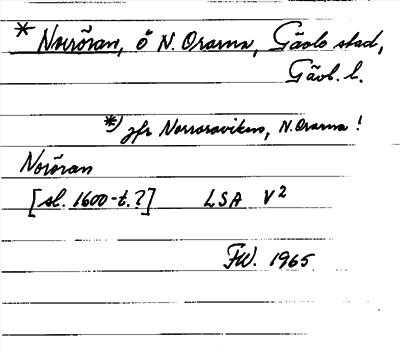 * Noröran, ö N. Orarna, Gävle stad,
Gävl. l.
*) jfr Norroraviken, N. Orarna!
Noröran
[sl. 1600-t.?] LSA V²
FW. 1965